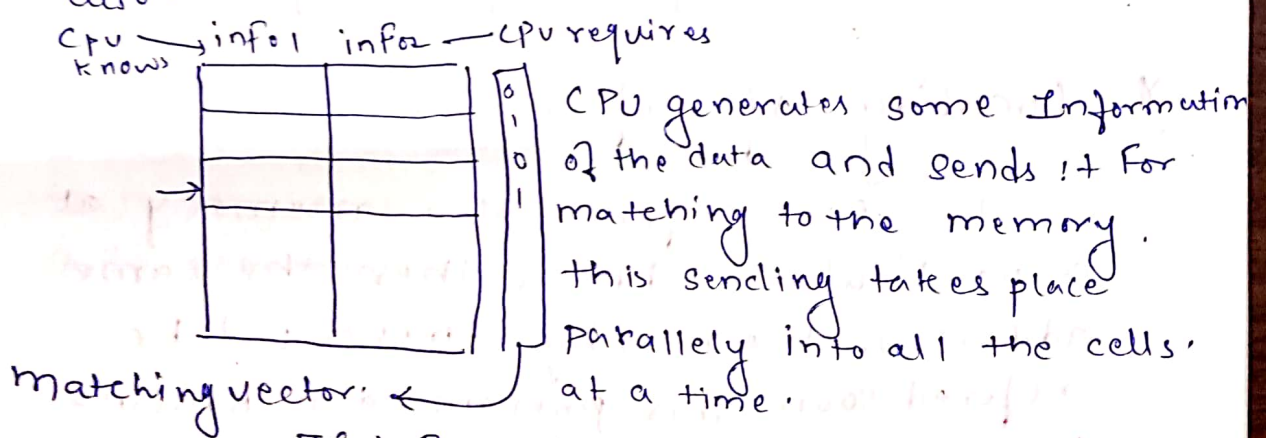 CPU knows → info1 info2 — CPU requires
0
1
0
1
CPU generates some Information
of the data and sends it For
matching to the memory.
this sending takes place
parallely into all the cells.
at a time.
Matching vector: ←